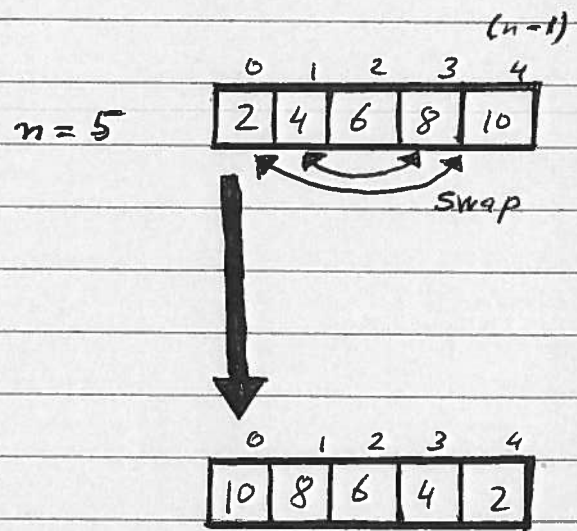 (n-1)
0 1 2 3 4
n = 5 2 4 6 8 10
Swap
0 1 2 3 4
10 8 6 4 2